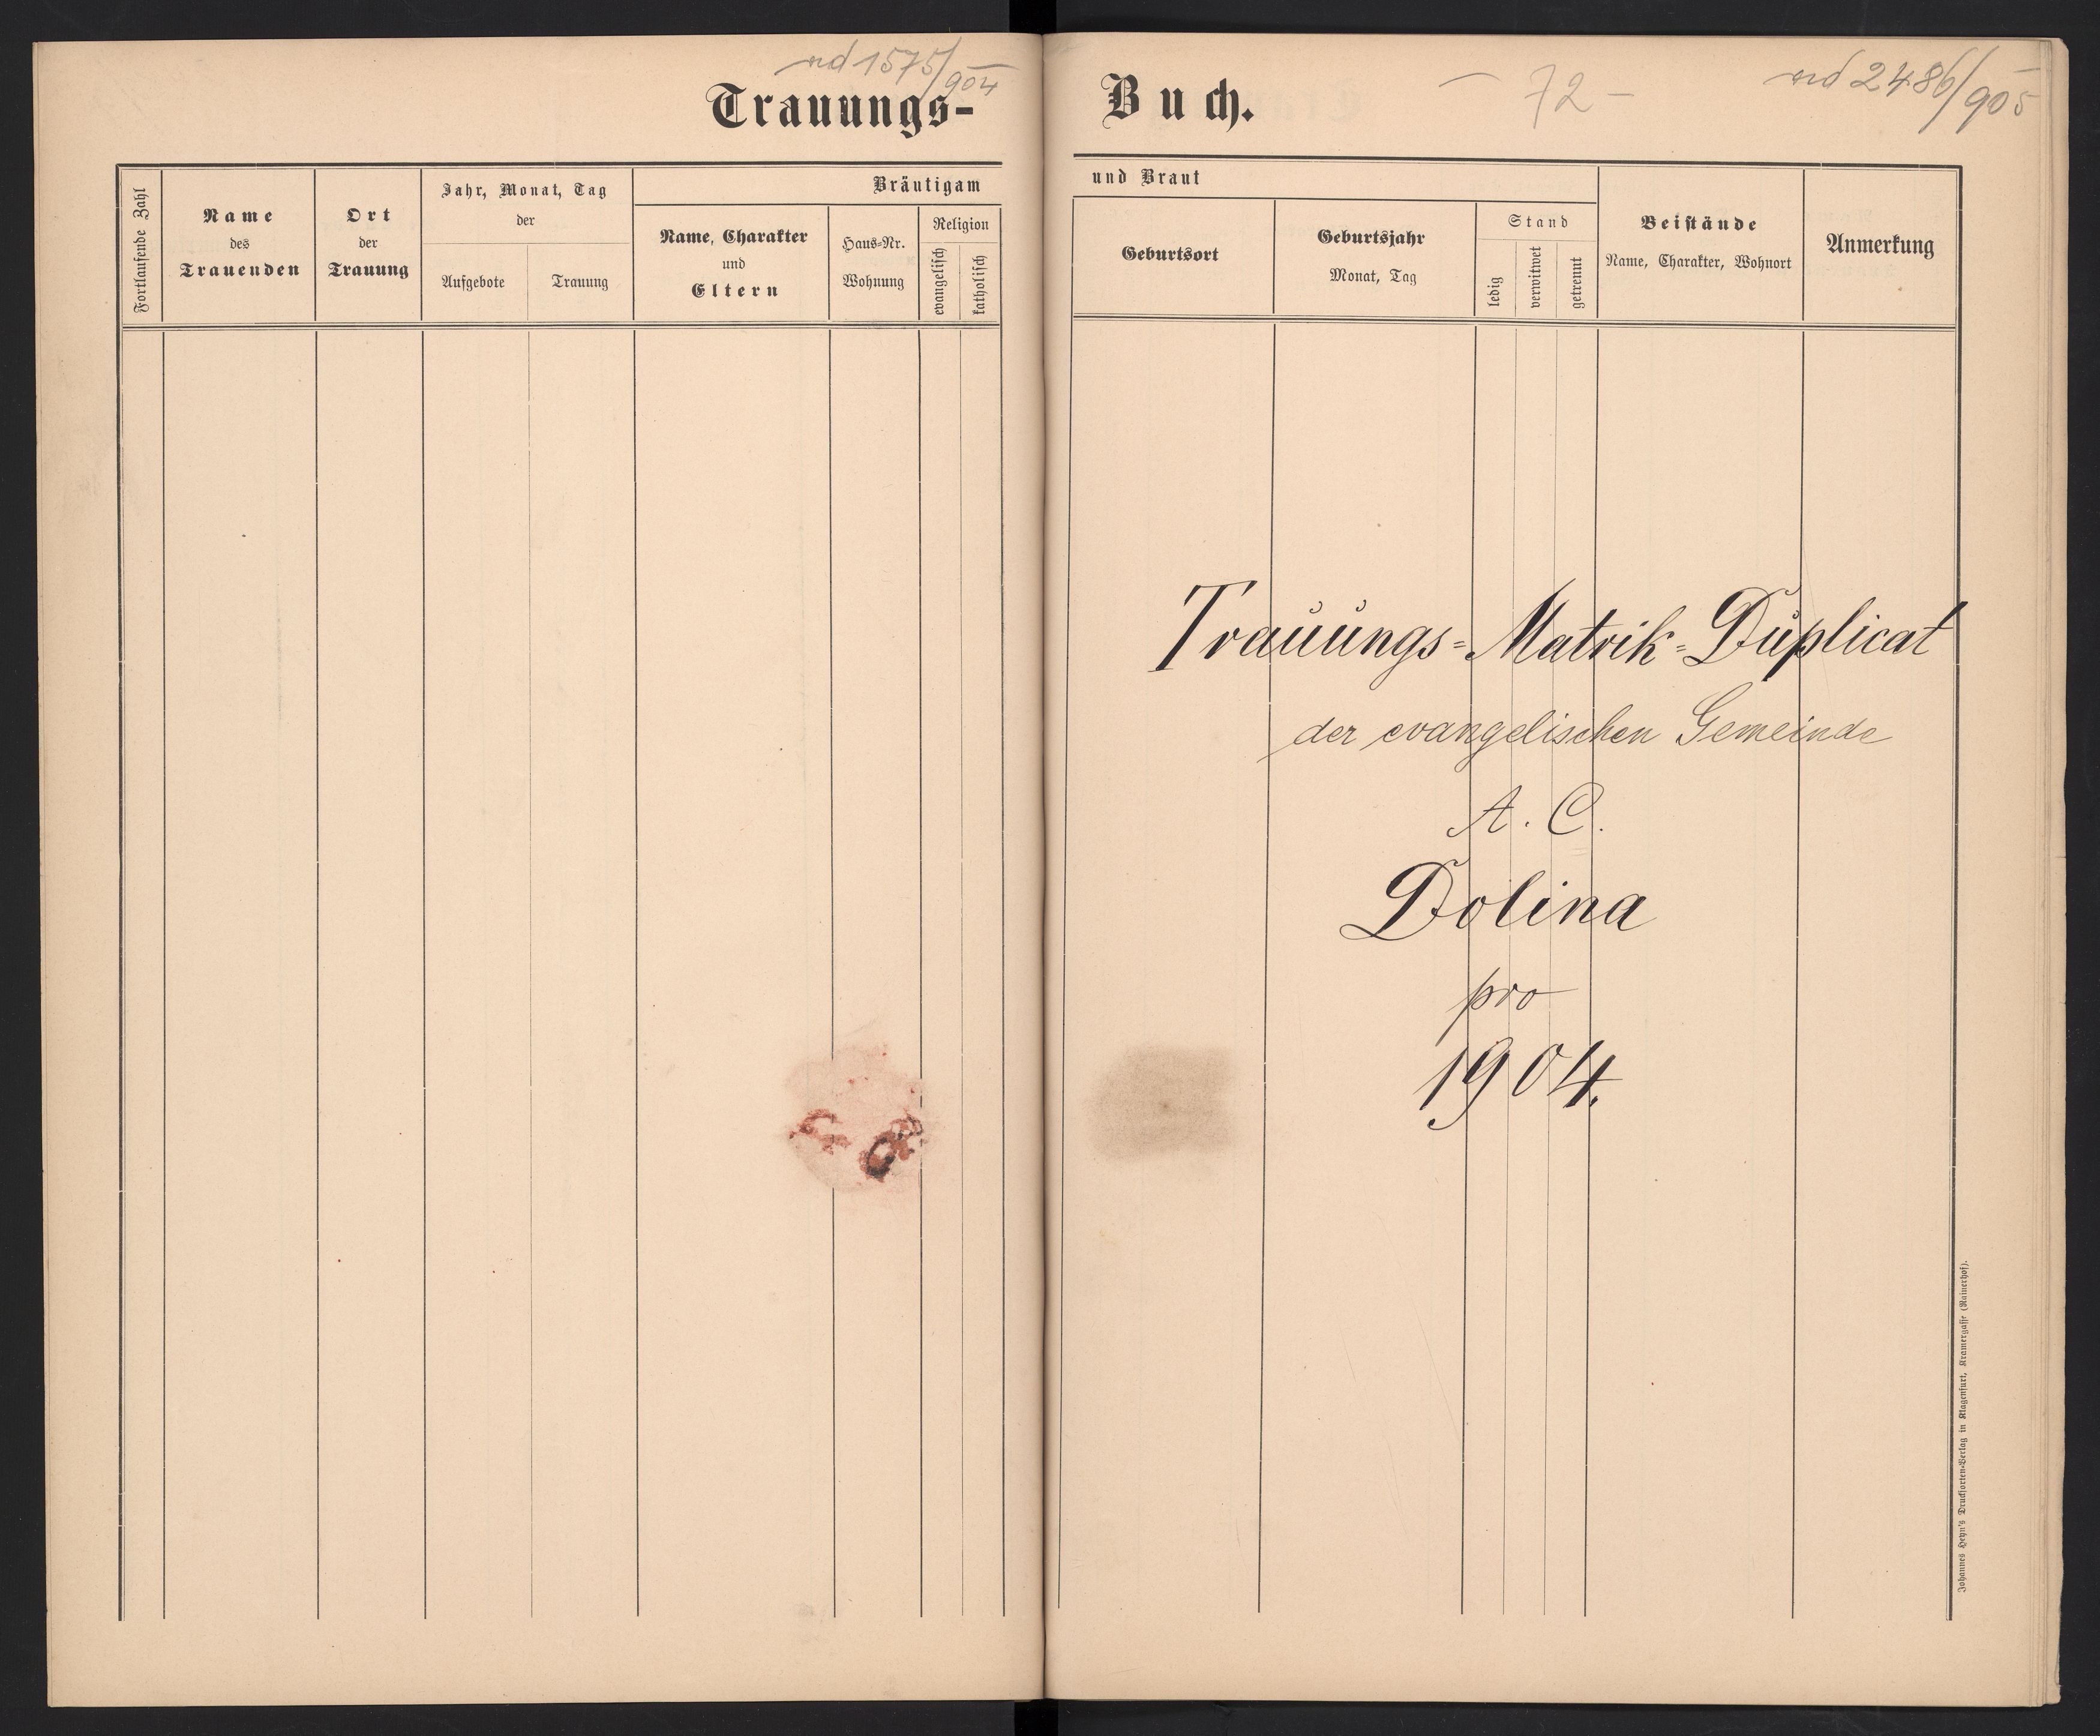 nd 1575/904
Trauungs-
Fortlaufende Zahl
Name
des
Trauenden
Ort
der
Trauung
Jahr, Monat, Tag
der
Aufgebote
Trauung
Bräutigam
Name, Charakter
und
Eltern
Haus-Nr.
Wohnung
Religion
evangelisch
katholisch
Buch.
– 72 –
nd 2486/905
und Braut
Geburtsort
Geburtsjahr
Monat, Tag
Stand
ledig
verwitwet
getrennt
Beistände
Name, Charakter, Wohnort
Anmerkung
Trauungs=Matrik=Duplicat
der evangelischen Gemeinde
A. C.
Dolina
pro
1904.
Johannes Heyn's Drucksorten-Verlag in Klagenfurt, Kramergasse (Rainerhof).